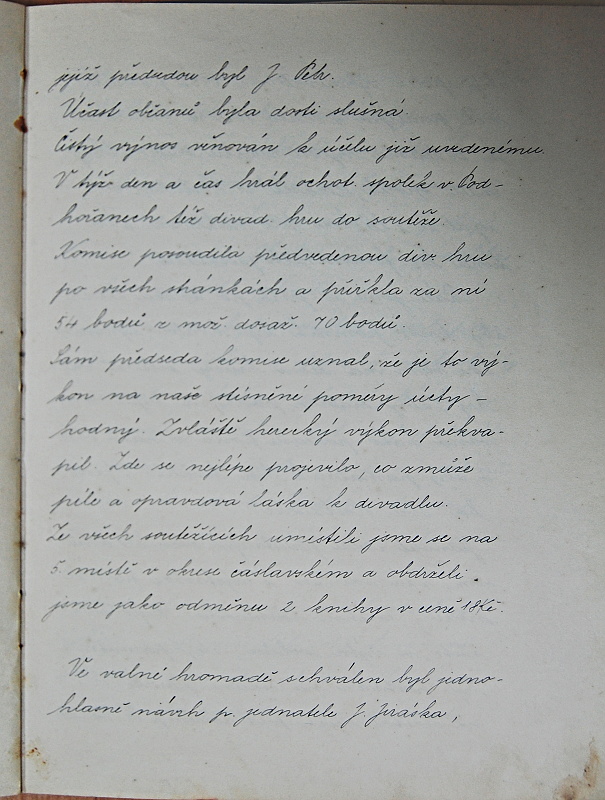 jejíž předsedou byl J. Petr.
Účast občanů byla dosti slušná.
Čistý výnos věnován k účelu již uvedenému.
V týž den a čas hrál ochot. spolek v Pod-
hořanech též divad. hru do soutěže.
Komise posoudila předvedenou div. hru
po všech stránkách a přiřkla za ní
54 bodů z mož. dosaž. 70 bodů.
Sám předseda komise uznal, že je to vý-
kon na naše stísněné poměry úcty-
hodný. Zvláště herecký výkon překva-
pil. Zde se nejlépe projevilo, co zmůže
píle a opravdová láska k divadlu.
Ze všech soutěžících umístili jsme se na
5. místě v okrese čáslavském a obdrželi
jsme jako odměnu 2 knihy v ceně 18 Kč.
Ve valné hromadě schválen byl jedno-
hlasně návrh p. jednatele J. Jiráska,